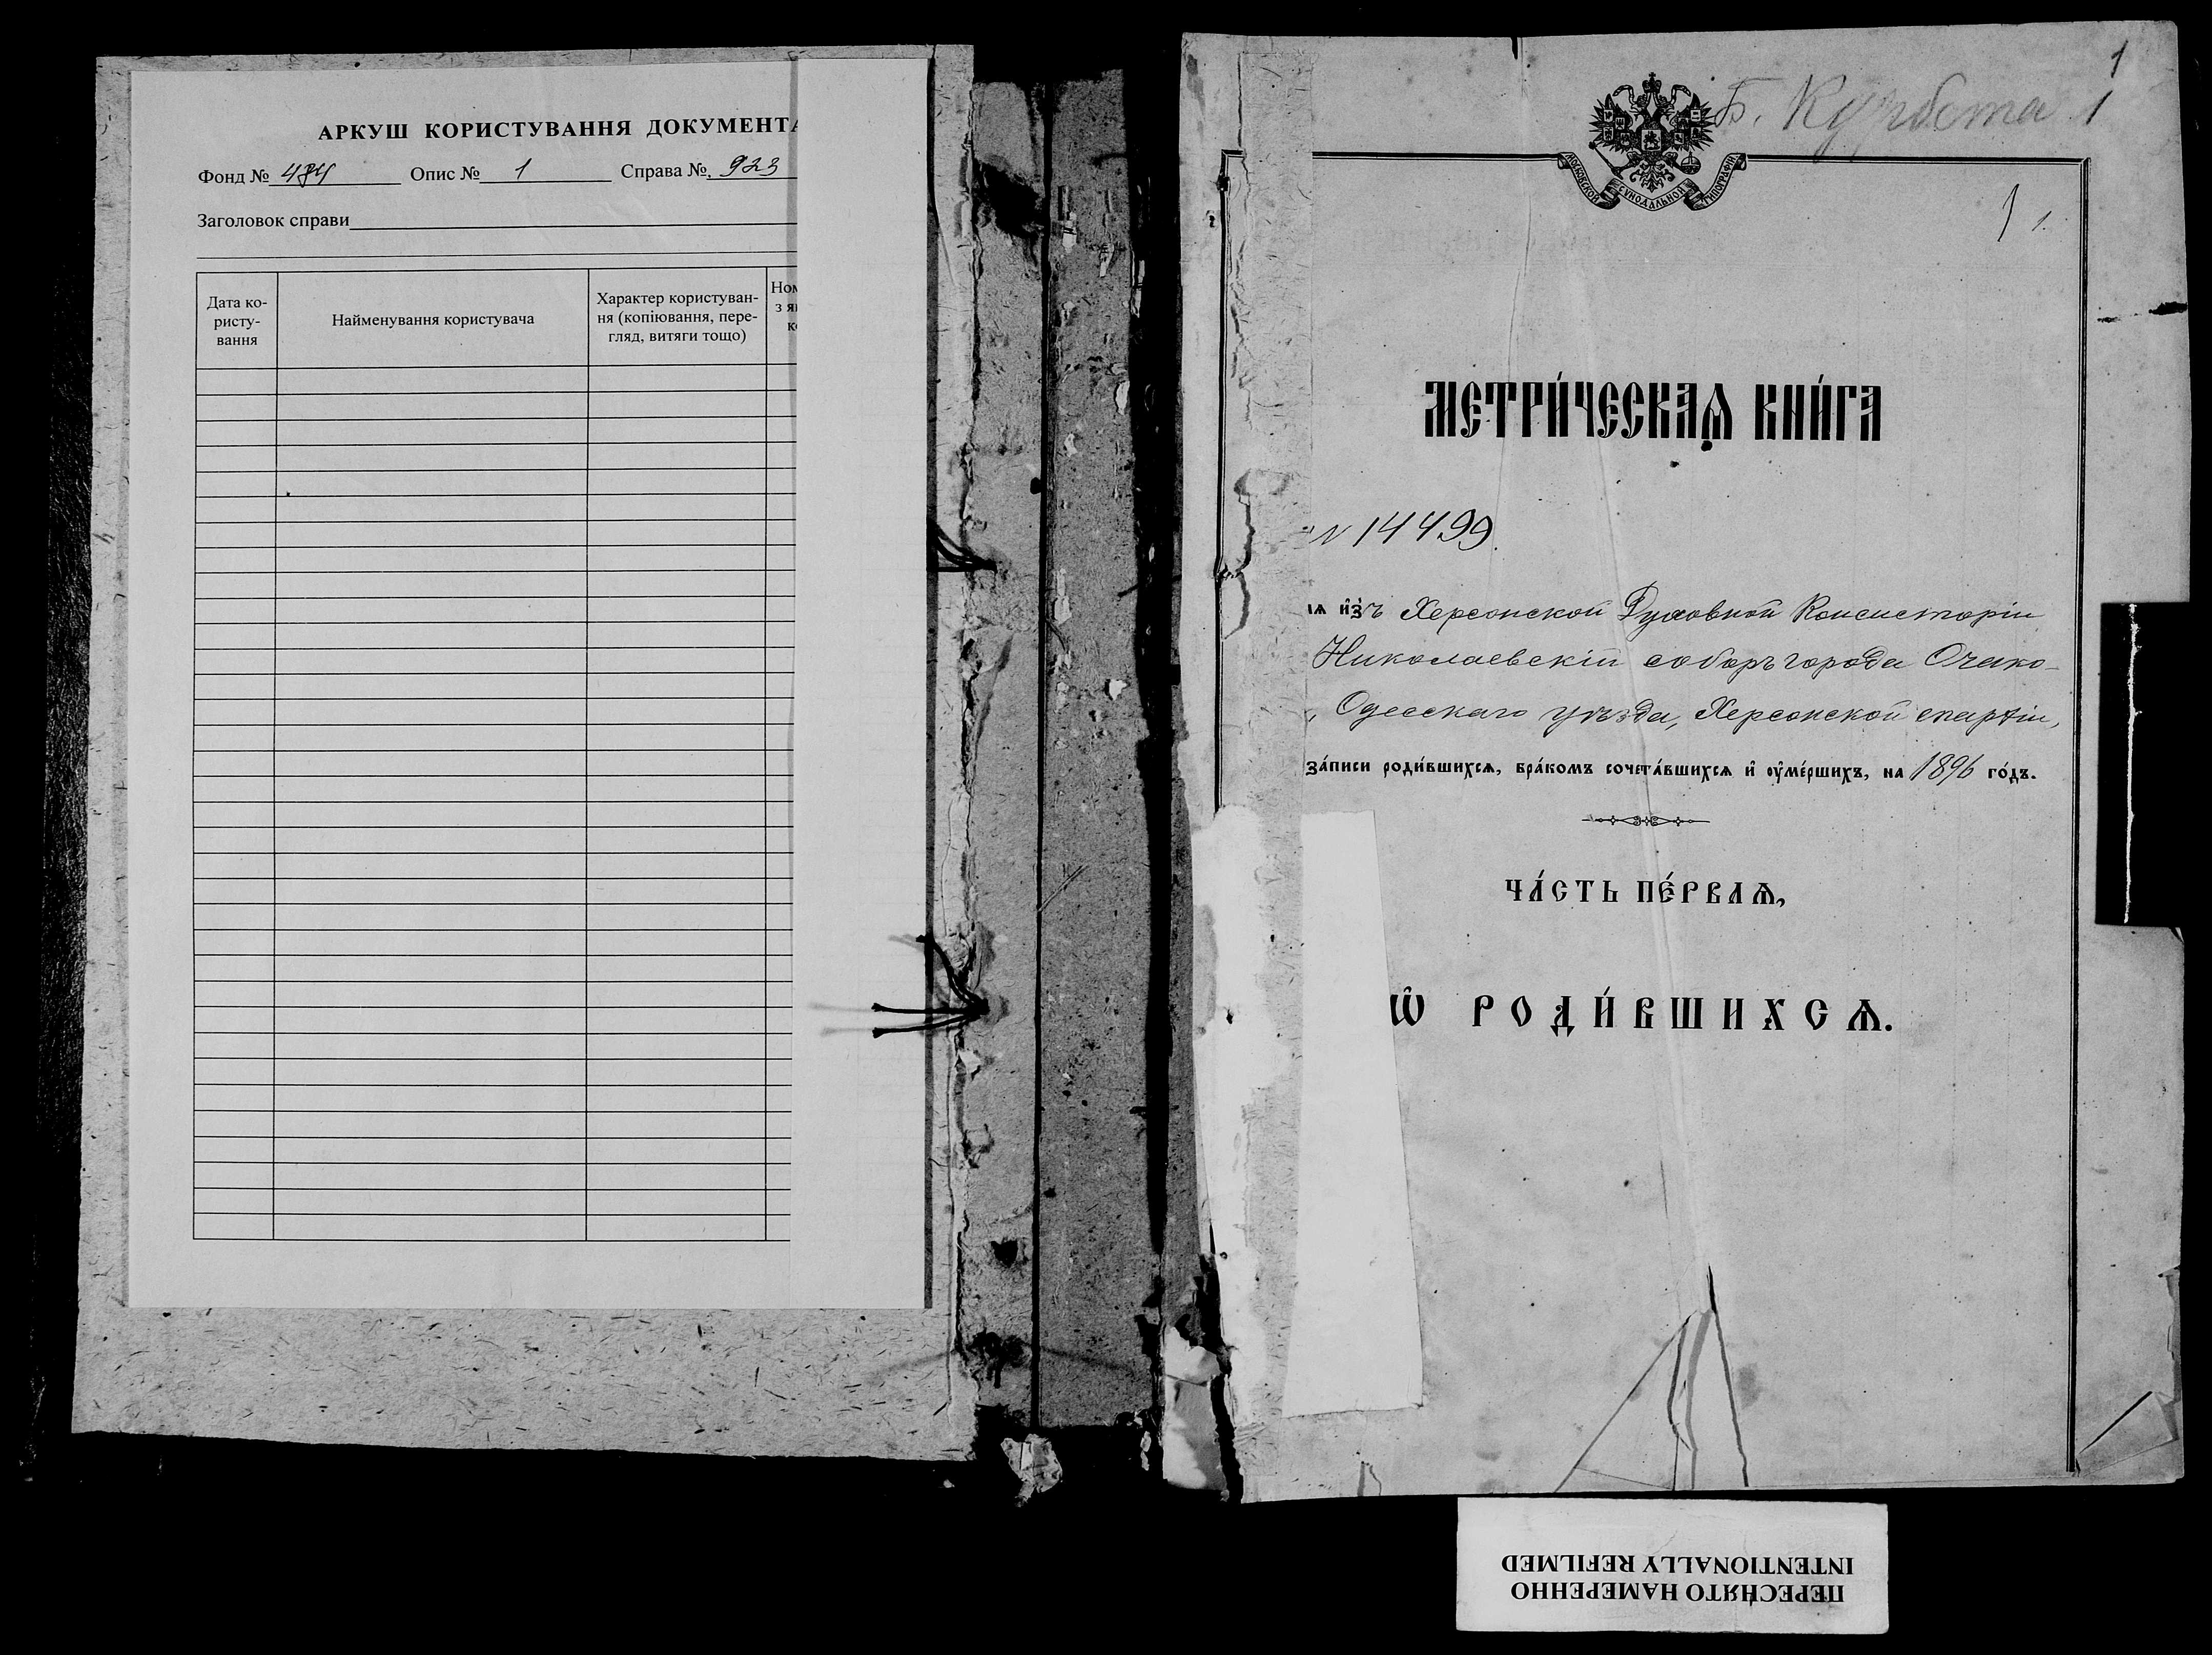 АРКУШ КОРИСТУВАННЯ ДОКУМЕНТА
Фонд № 484 Опис № 1 Справа № 923
Заголовок справи
Дата ко-
ристу-
вання
Найменування користувача
Характер користуван-
ня (копіювання, пере-
гляд, витяги тощо)
Ном
з як
ко
1
Б. 1
МОСКОВСКОЙ СѴНОДАЛЬНОЙ ТИПОГРАФІИ
1 1.
МЕТРИ́ЧЕСКАѦ КНИ́ГА
№ 14499.
ıѧ и҆з̾ъ Херсонской Духовной Консисторіи
Николаевскій соборъ города Очако-
, Одесскаго уѣзда, Херсонской епархіи,
за́писи роди́вшихсѧ, бра́комъ сочета́вшихсѧ и҆ ᲂу҆ме́ршихъ, на 1896 го́дъ.
ЧА́СТЬ ПЕ́РВАѦ,
Ѽ РОДИ́ВШИХСѦ.
ПЕРЕСНЯТО НАМЕРЕННО
INTENTIONALLY REFILMED